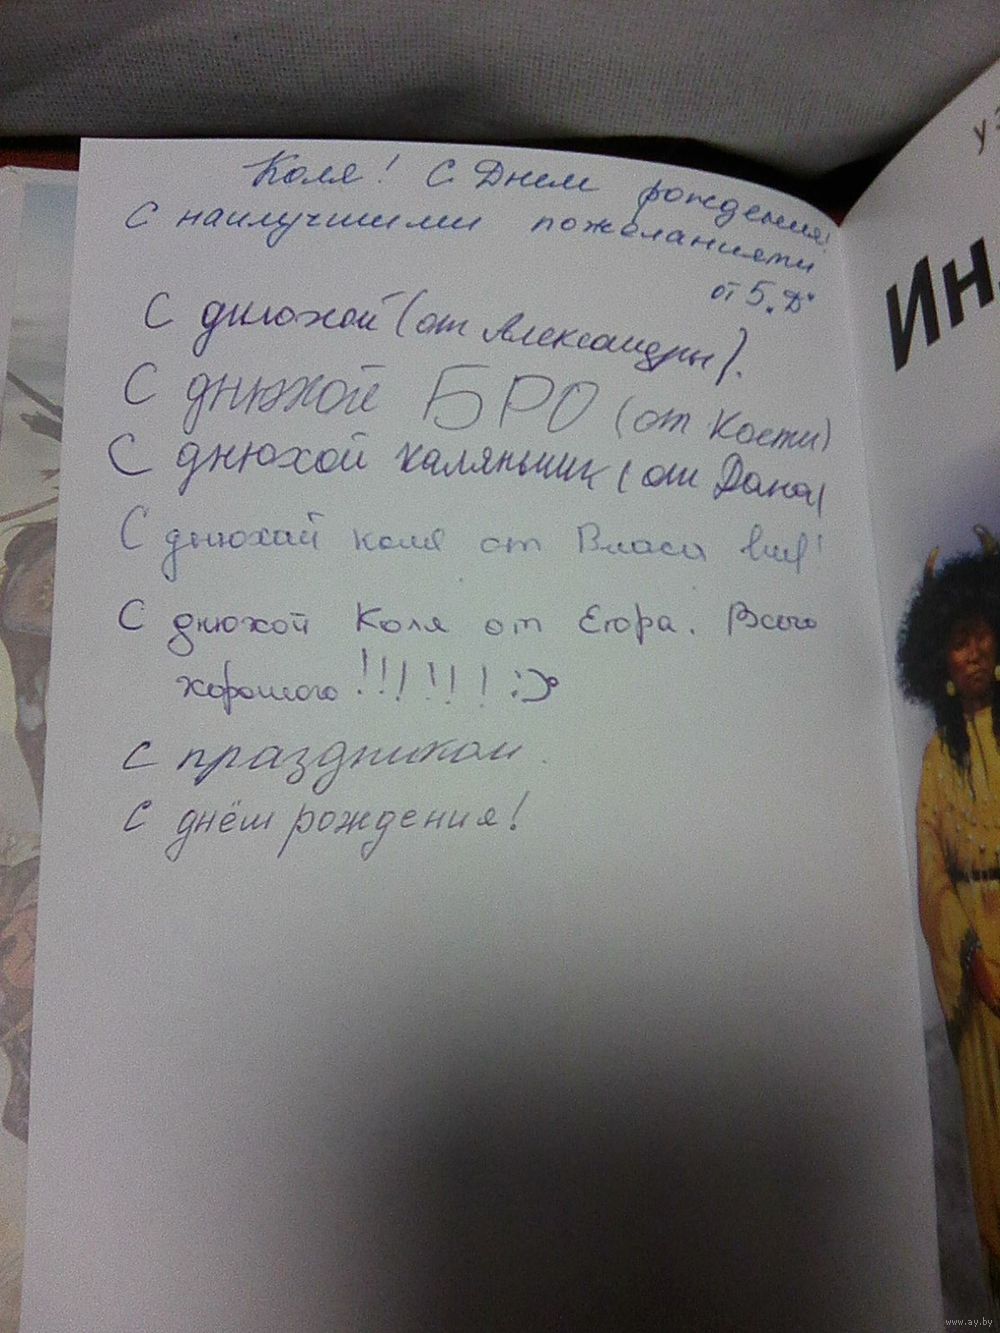 Коля! С Днем рождения!
С наилучшими пожеланиями
от 5 "Д"
С днюхой (от Александры).
С днюхой БРО (от Кости)
С днюхой каляныч (от Дана)
С днюхай коля от Власа
С днюхой Коля от Егора. Всего
хорошого !!!!!! :D
С праздником.
С днём рождения!
у
Ин
www.ay.by